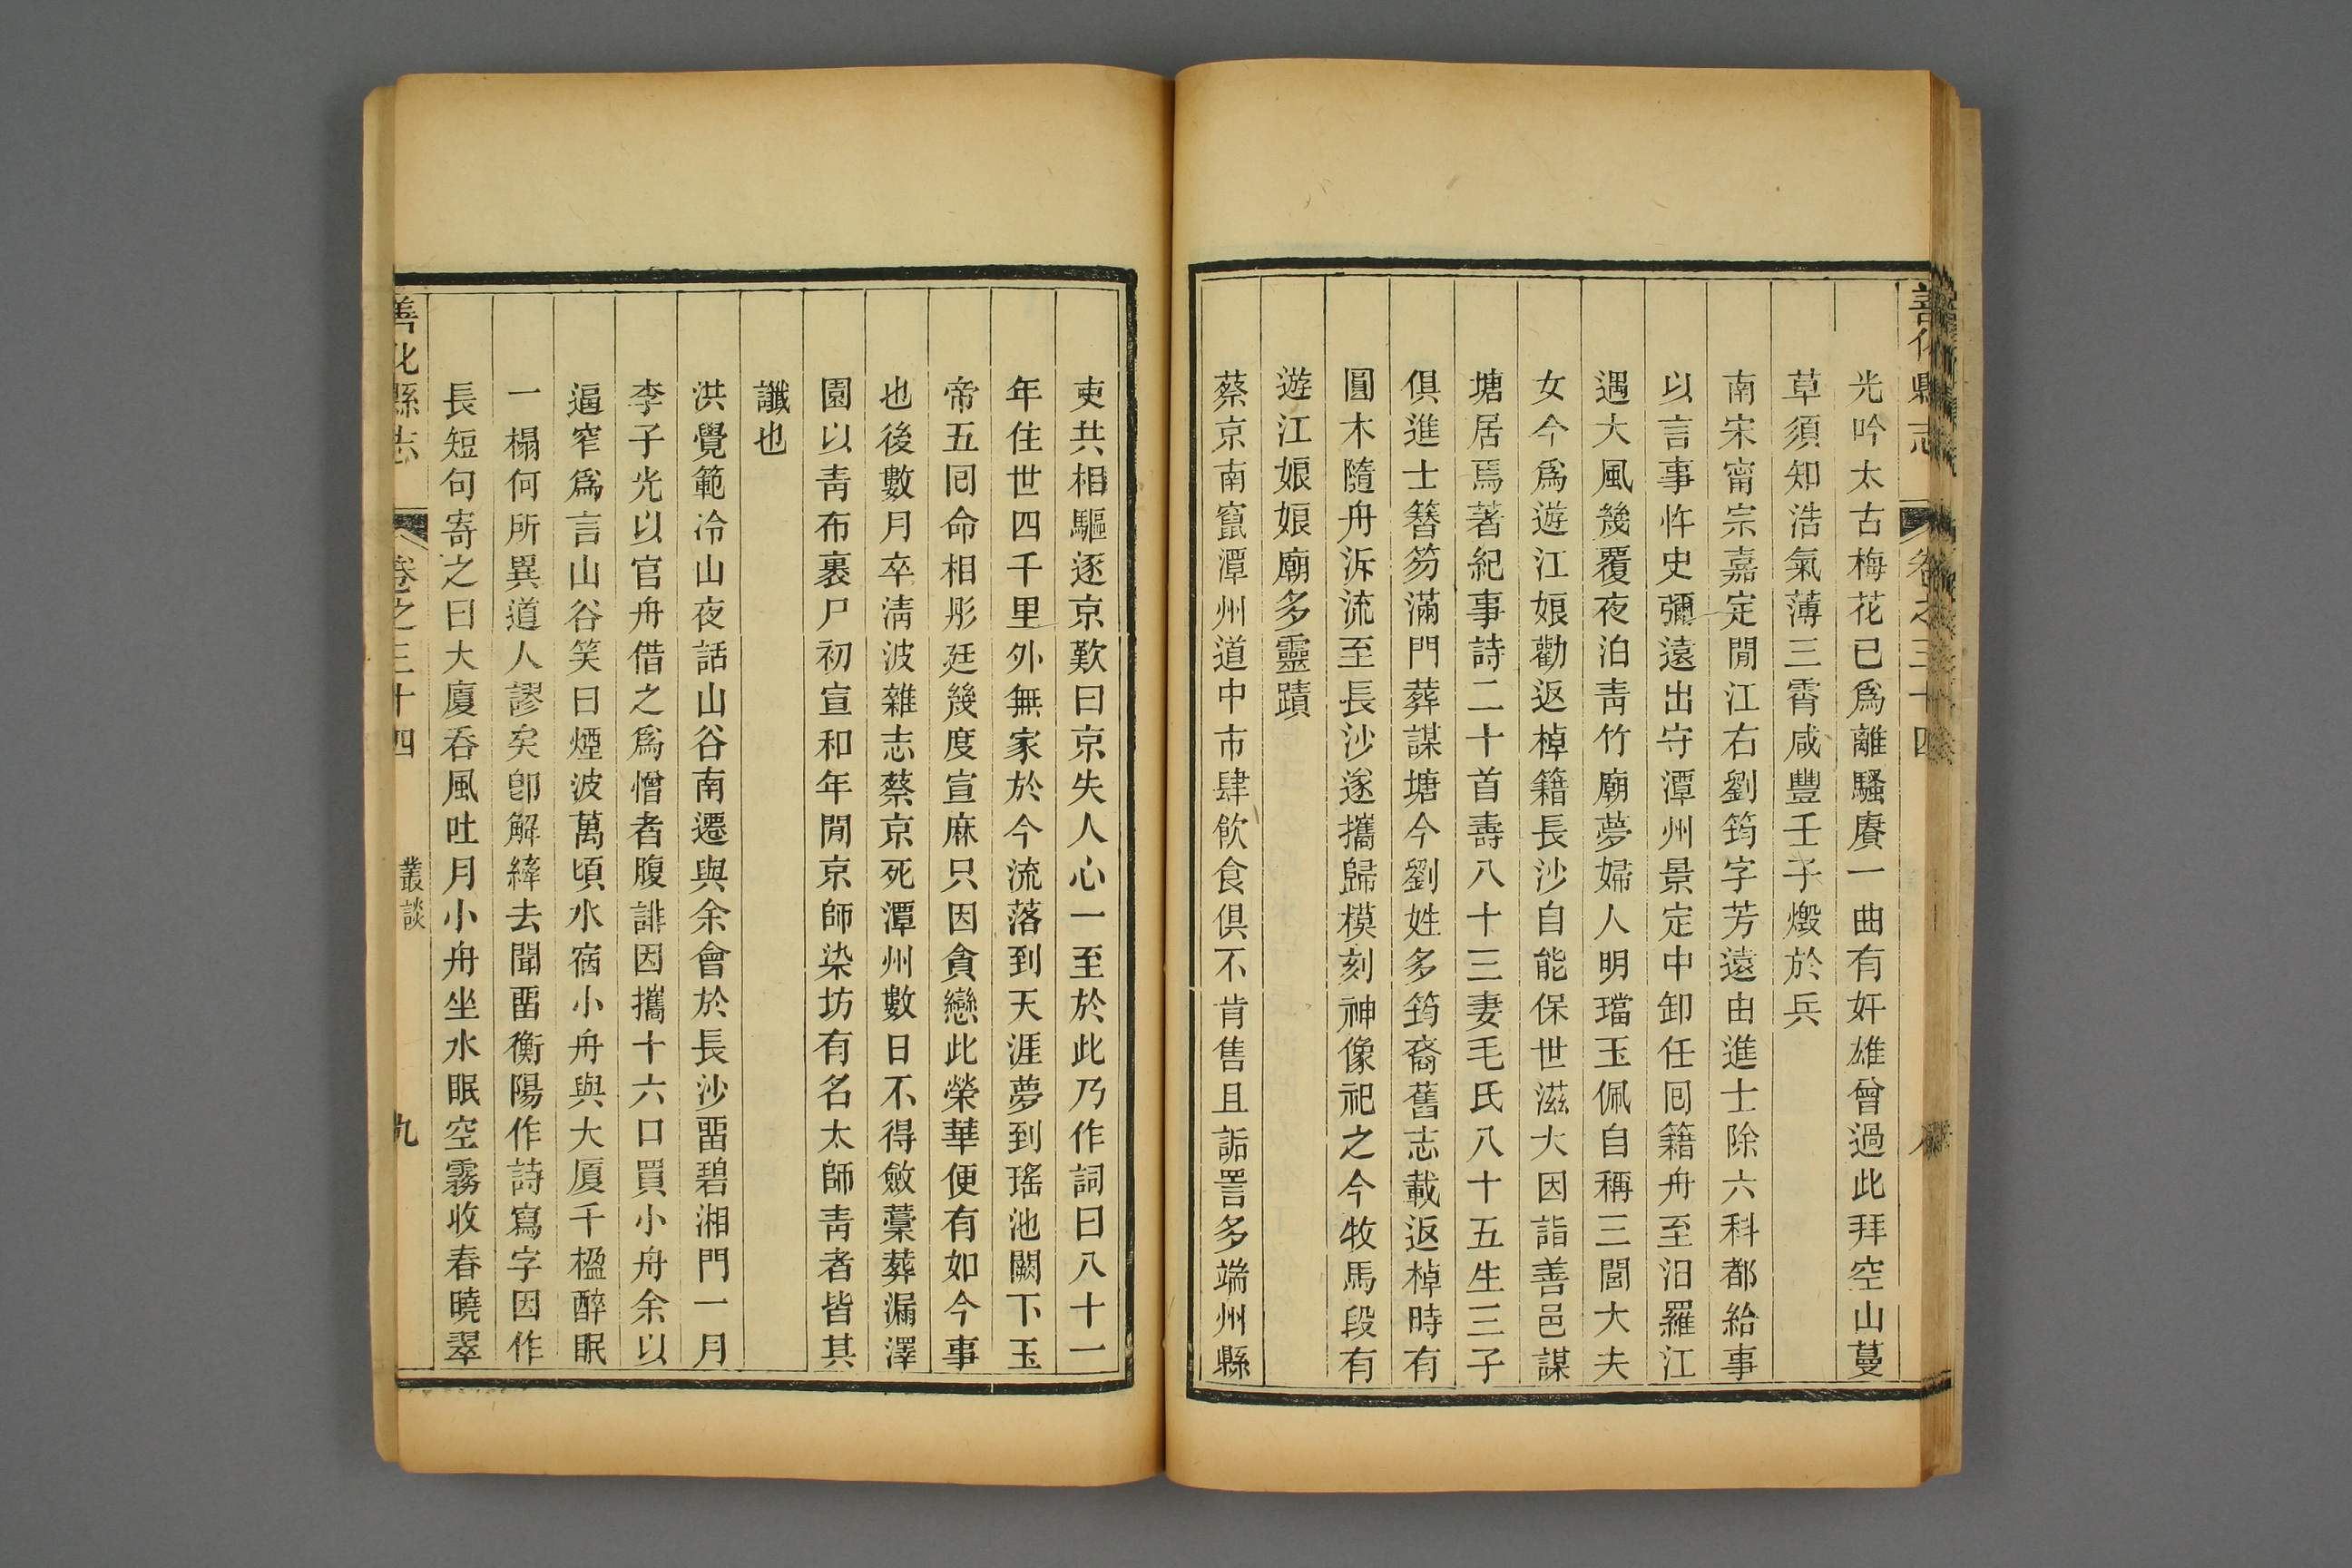 善化縣志 卷之三十四
光吟太古梅花已爲離騷賡一曲有奸雄曾過此拜空山蔓
草須知浩氣薄三霄咸豐壬子燬於兵
南宋甯宗嘉定閒江右劉筠字芳遠由進士除六科都給事
以言事忤史彌遠出守潭州景定中卸任囘籍舟至汨羅江
遇大風幾覆夜泊靑竹廟夢婦人明璫玉佩自稱三閭大夫
女今爲遊江娘勸返棹籍長沙自能保世滋大因詣善邑謀
塘居焉著紀事詩二十首壽八十三妻毛氏八十五生三子
俱進士簪笏滿門葬謀塘今劉姓多筠裔舊志載返棹時有
圓木隨舟泝流至長沙遂攜歸模刻神像祀之今牧馬段有
遊江娘娘廟多靈蹟
蔡京南竄潭州道中市肆飮食俱不肯售且詬詈多端州縣
吏共相驅逐京歎曰京失人心一至於此乃作詞曰八十一
年住世四千里外無家於今流落到天涯夢到瑤池闕下玉
帝五囘命相彤廷幾度宣麻只因貪戀此榮華便有如今事
也後數月卒淸波雜志蔡京死潭州數日不得斂藁葬漏澤
園以靑布裹尸初宣和年閒京師染坊有名太師靑者皆其
讖也
洪覺範冷山夜話山谷南遷與余會於長沙畱碧湘門一月
李子光以官舟借之爲憎者腹誹因攜十六口買小舟余以
逼窄爲言山谷笑曰煙波萬頃水宿小舟與大厦千楹醉眠
一榻何所異道人謬矣卽解縴去聞畱衡陽作詩寫字因作
長短句寄之曰大廈吞風吐月小舟坐水眠空霧收春曉翠
善化縣志 卷之三十四 叢談 九